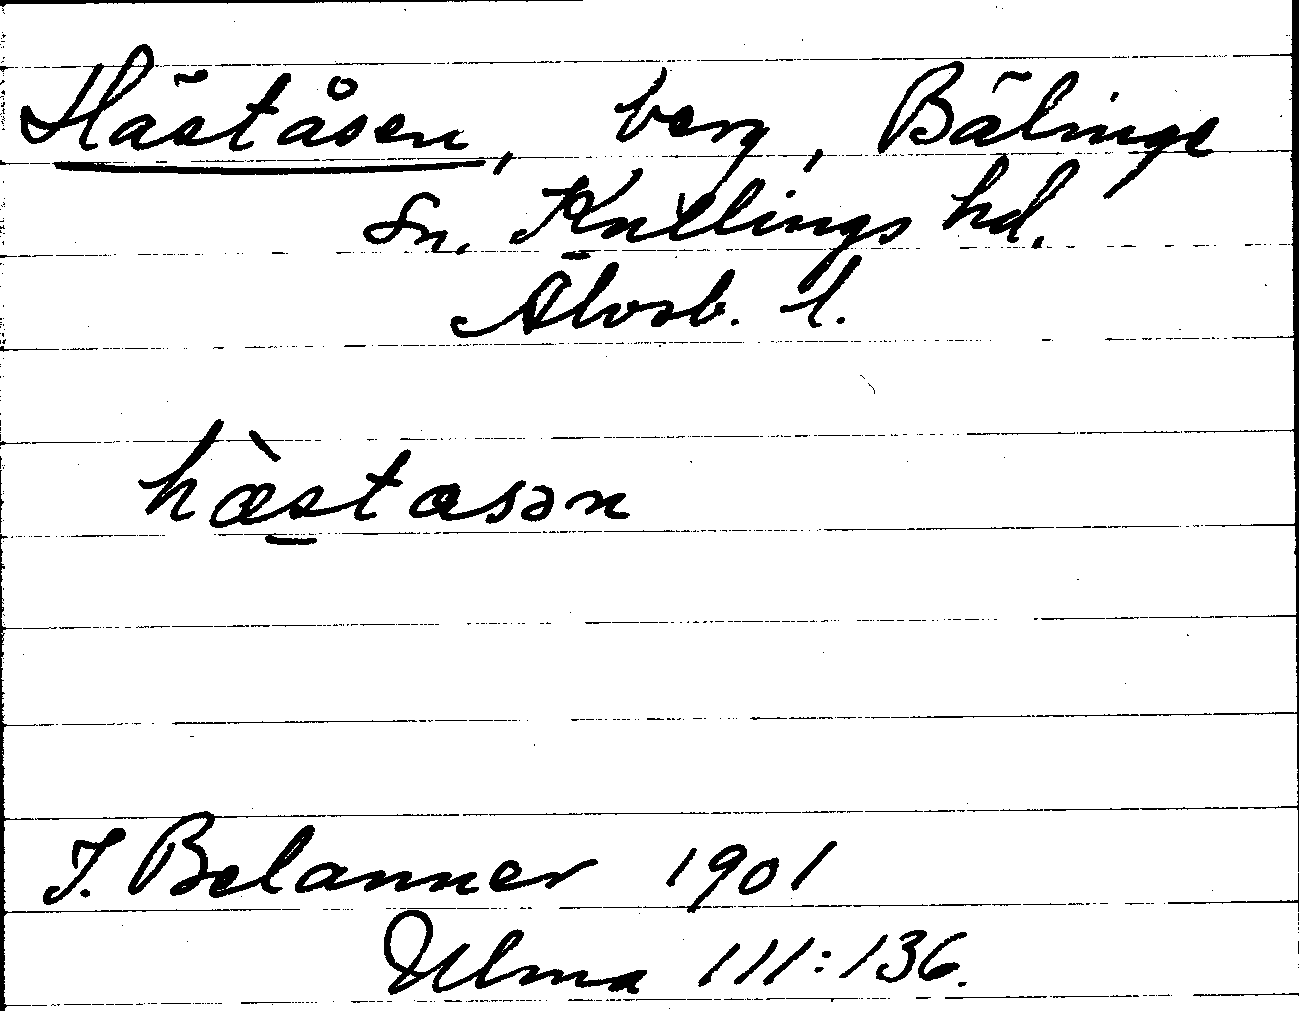 Häståsen, berg, Bälinge
Sn. Kullings hd.
Älvsb. l.
hæ̀stasən
J. Belanner 1901
Ulma 111:136.